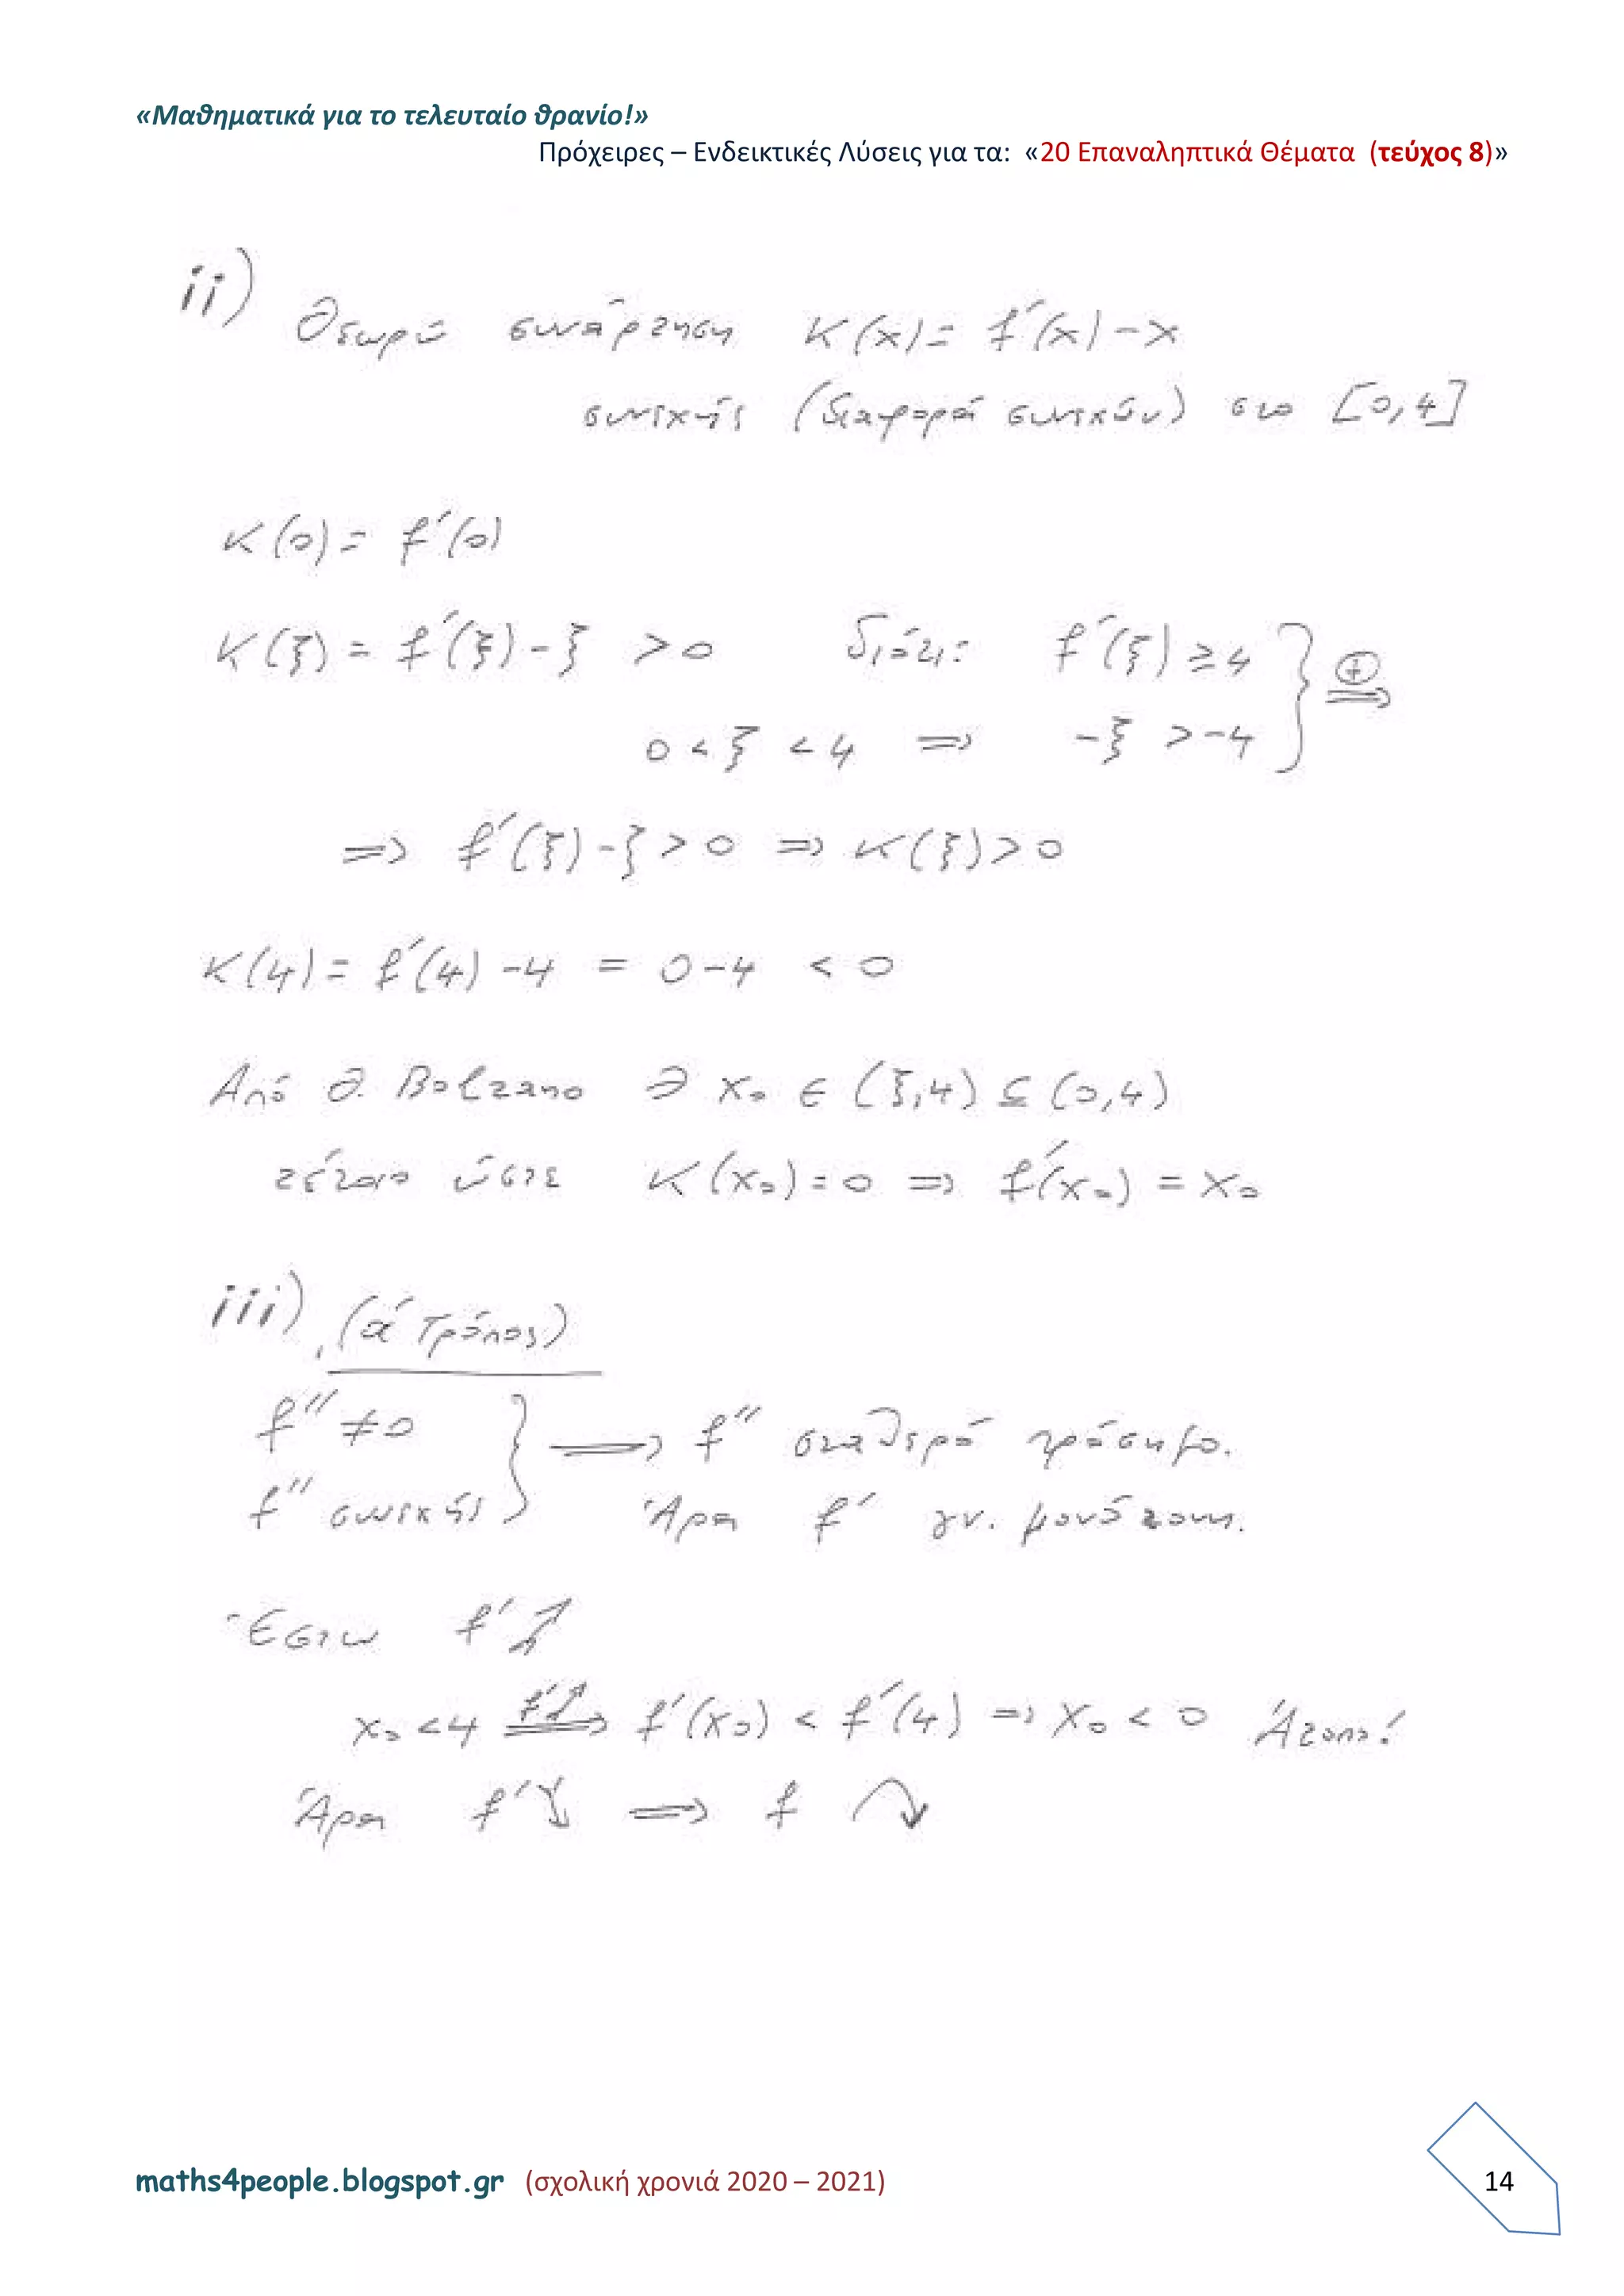 «Μαθηματικά για το τελευταίο θρανίο!»
Πρόχειρες – Ενδεικτικές Λύσεις για τα: «20 Επαναληπτικά Θέματα (τεύχος 8)»
ii) Θεωρώ συνάρτηση K(x) = f'(x) - x
συνεχής (διαφορά συνεχών) στο [0,4]
K(0) = f'(0)
K(ξ) = f'(ξ) - ξ > 0 διότι: f'(ξ) ≥ 4 } ⊕⇒
0 < ξ < 4 ⇒ -ξ > -4
⇒ f'(ξ) - ξ > 0 ⇒ K(ξ) > 0
K(4) = f'(4) - 4 = 0 - 4 < 0
Από Θ. Bolzano ∃ x₀ ∈ (ξ,4) ⊆ (0,4)
τέτοιο ώστε K(x₀) = 0 ⇒ f'(x₀) = x₀
iii) (ά Τρόπος)
f'' ≠ 0 } ⇒ f'' σταθερό πρόσημο.
f'' συνεχής Άρα f' γν. μονότονη.
Έστω f' ↗
x₀ < 4 f'↗⇒ f'(x₀) < f'(4) ⇒ x₀ < 0 Άτοπο!
Άρα f' ↘ ⇒ f ⤵
maths4people.blogspot.gr (σχολική χρονιά 2020 – 2021) 14